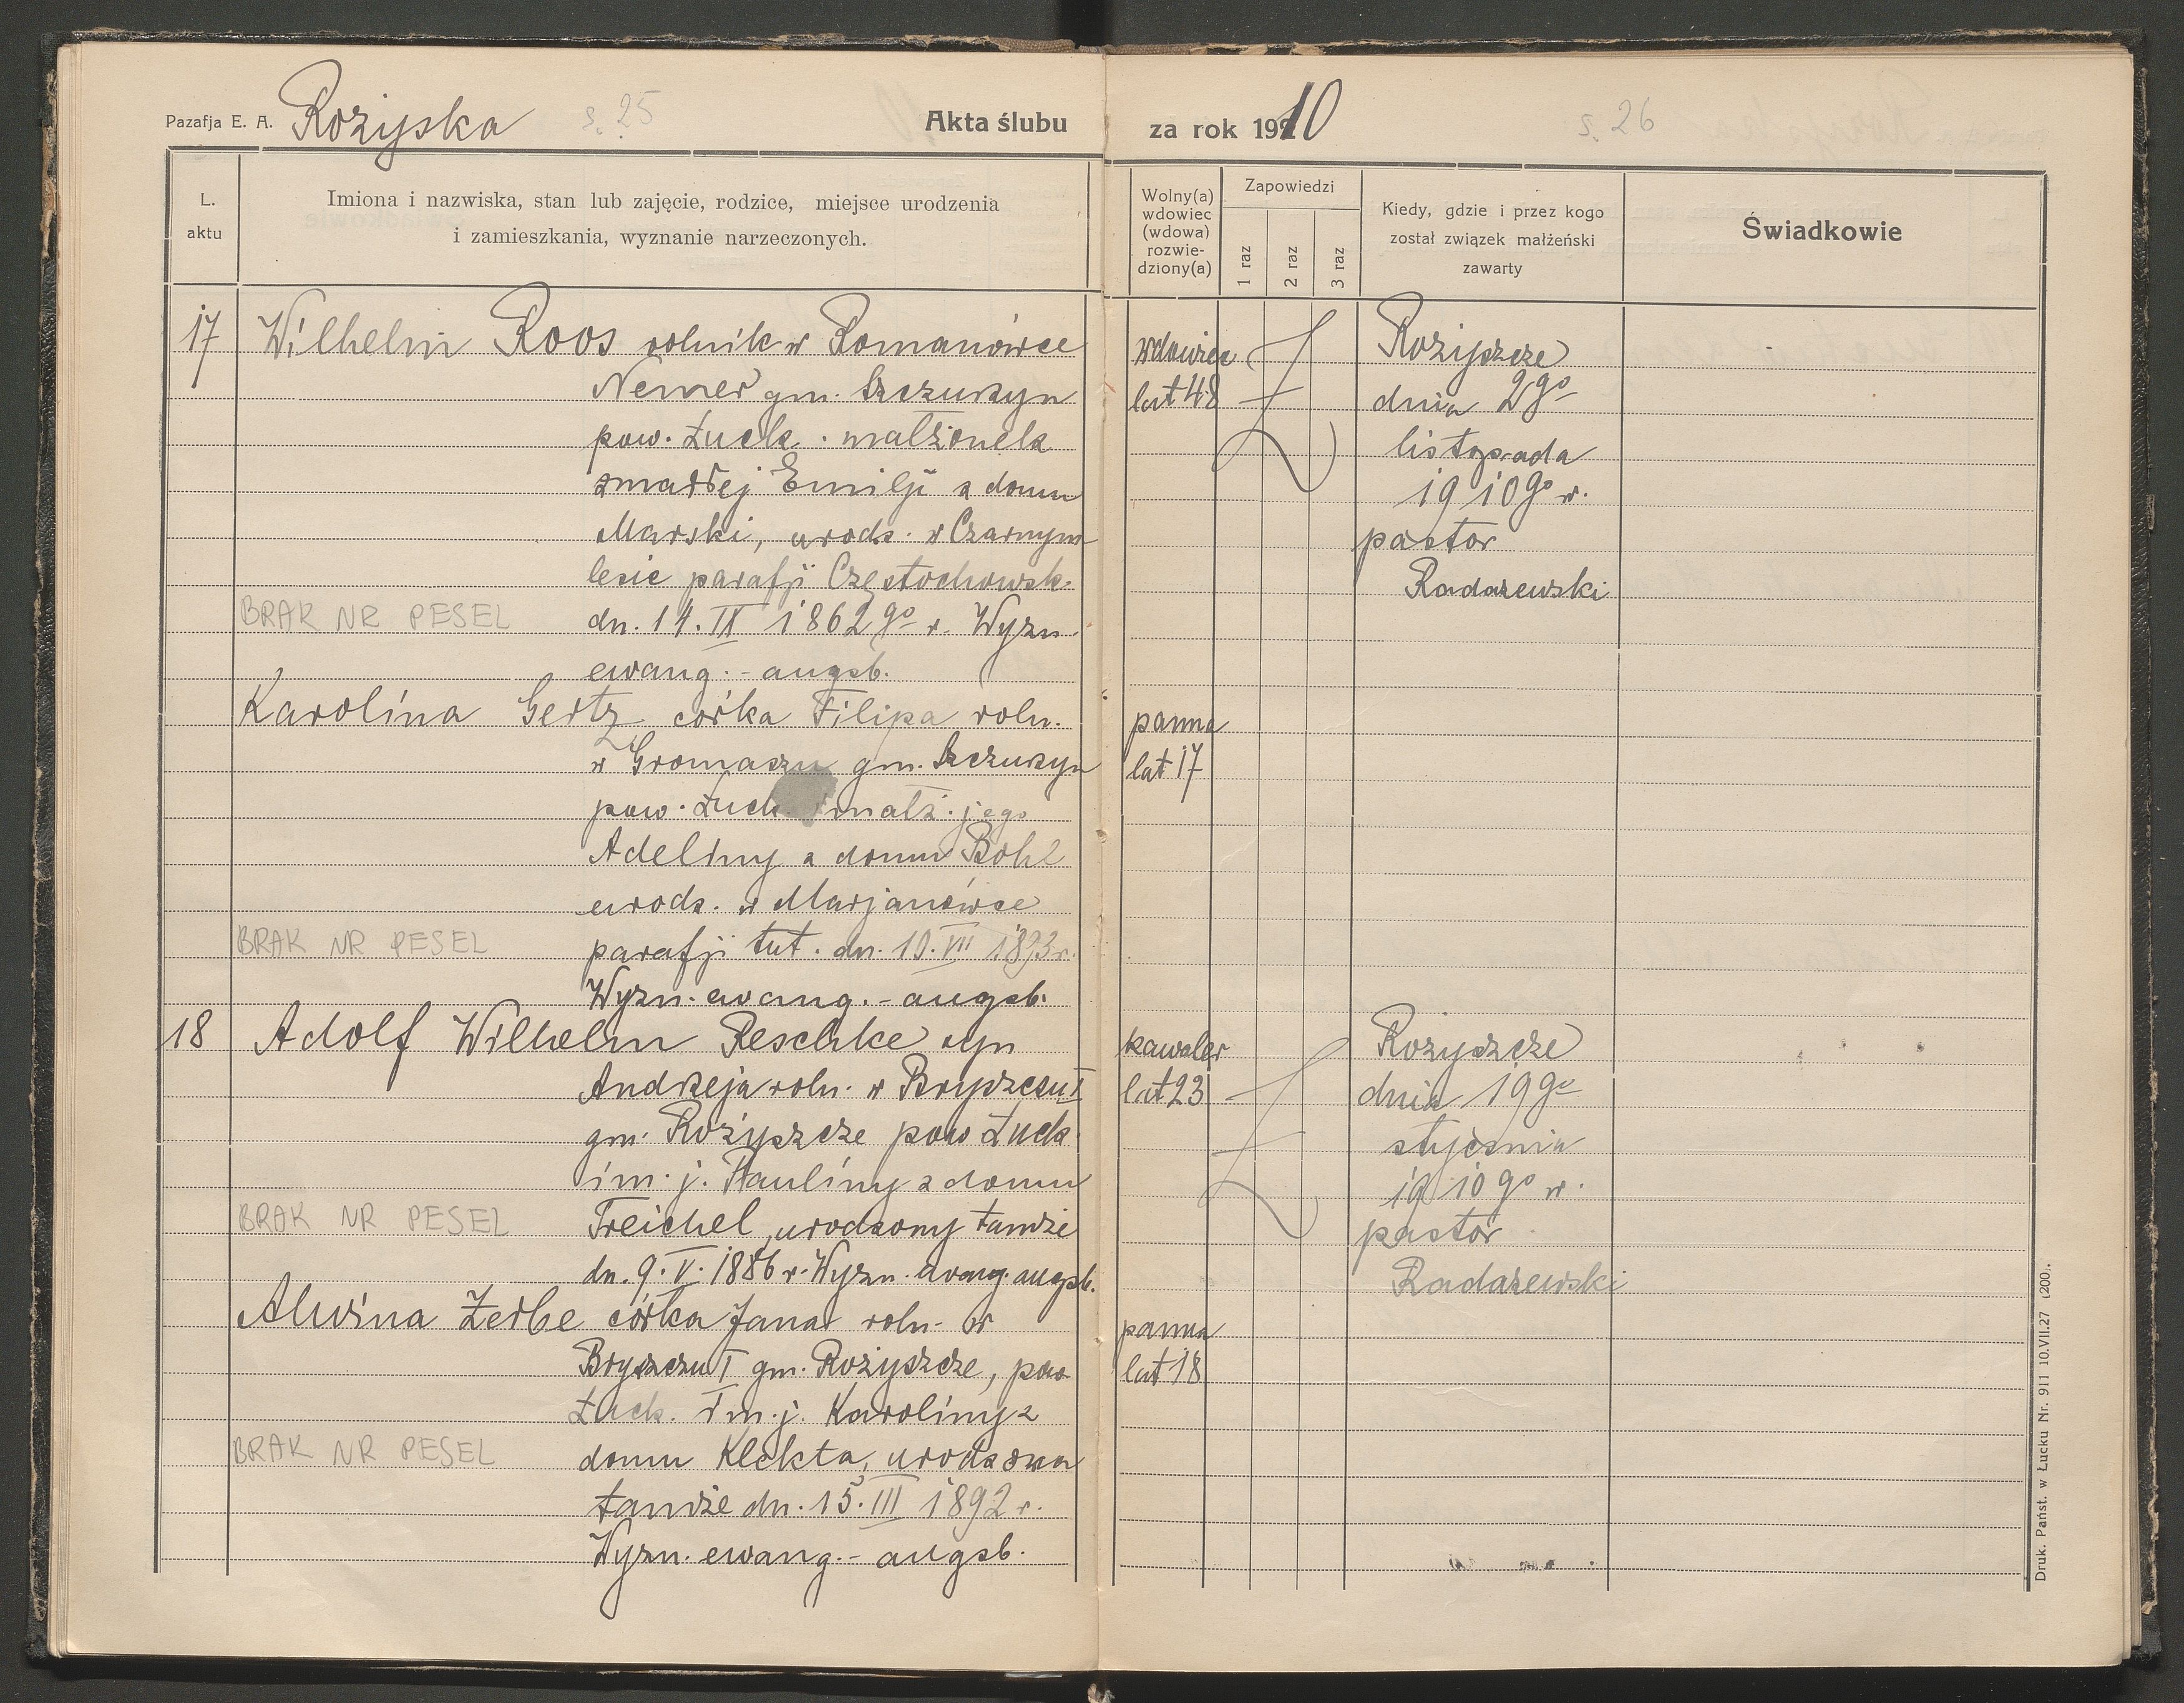 Pazafja E. A. Rożyska s. 25 Akta ślubu
L. aktu
Imiona i nazwiska, stan lub zajęcie, rodzice, miejsce urodzenia
i zamieszkania, wyznanie narzeczonych.
17 Wilhelm Roos rolnik w Romanówce
Nemer gm. Szczurzyn
pow. Łuck. małżonek
zmarłej Emilji z domu
Marski, urodz. w Czarnym
lesie parafji Częstochowsk.
BRAK NR PESEL dn. 14. IX 1862go r. Wyzn.
ewang.-augsb.
Karolina Gertz córka Filipa roln.
w Gromaszu gm. Szczurzyn
pow. Łuck. i małż. jego
Adeliny z domu Bohl
urodz. w Marjanówce
BRAK NR PESEL parafji tut. dn. 10. VII 1893 r.
Wyzn. ewang.-augsb.
18 Adolf Wilhelm Peschke syn
Andrzeja roln. w Bryszczu I
gm. Rożyszcze pow Łuck.
i m. j. Pauliny z domu
BRAK NR PESEL Treichel, urodzony tamże
dn. 9. V. 1886 r. Wyzn. ewang. augsb.
Alwina Zerbe córka Jana roln. w
Bryszczu I gm. Rożyszcze, pow
Łuck. i m. j. Karoliny z
BRAK NR PESEL domu Klekta, urodzona
tamże dn. 15. III 1892 r.
Wyzn. ewang.-augsb.
za rok 1910 s. 26
Wolny(a)
wdowiec
(wdowa)
rozwie-
dziony(a)
Zapowiedzi
1 raz
2 raz
3 raz
Kiedy, gdzie i przez kogo
został związek małżeński
zawarty
Świadkowie
wdowiec
lat 48
Rożyszcze
dnia 2go
listopada
1910go r.
pastor
Radaszewski
panna
lat 17
kawaler
lat 23
Rożyszcze
dnia 19go
stycznia
1910go r.
pastor
Radaszewski
panna
lat 18
Druk. Państ. w Łucku Nr. 911 10.VII.27 (200).